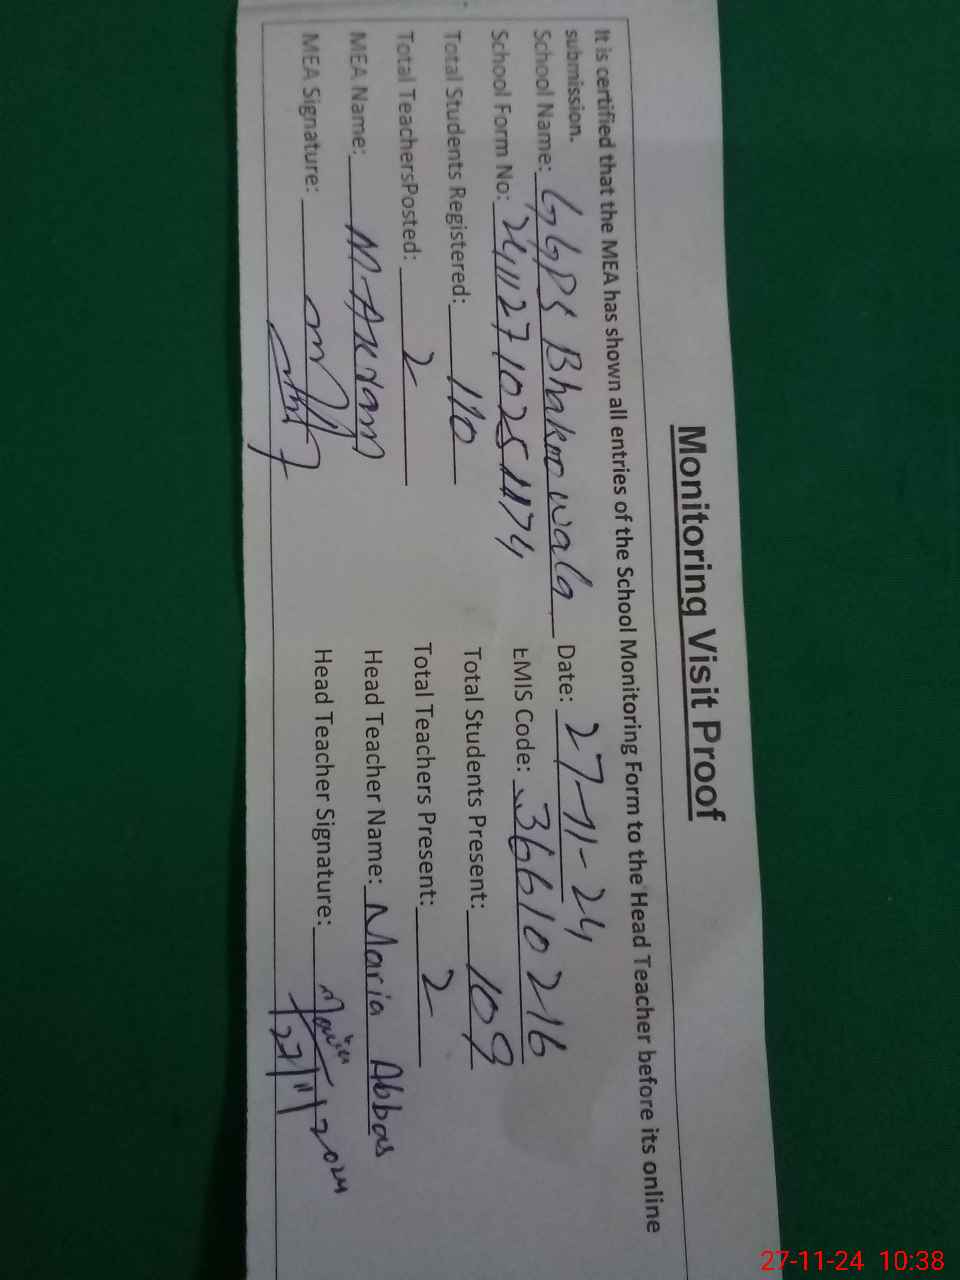 Monitoring Visit Proof
It is certified that the MEA has shown all entries of the School Monitoring Form to the Head Teacher before its online
submission.
School Name: GGPS Bhakoowala Date: 27-11-24
School Form No: 24112710251174 EMIS Code: 36610216
Total Students Registered: 110 Total Students Present: 109
Total TeachersPosted: 2 Total Teachers Present: 2
MEA Name: M-Akram Head Teacher Name: Maria Abbas
MEA Signature: Head Teacher Signature: Maria
27/11/2024
27-11-24 10:38